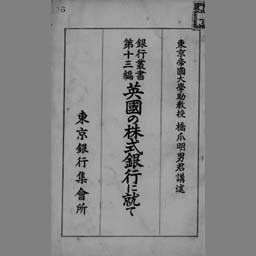 東京帝國大學助敎授 橋爪明男君講述
銀行叢書
第十三編
英國の株式銀行に就て
東京銀行集會所